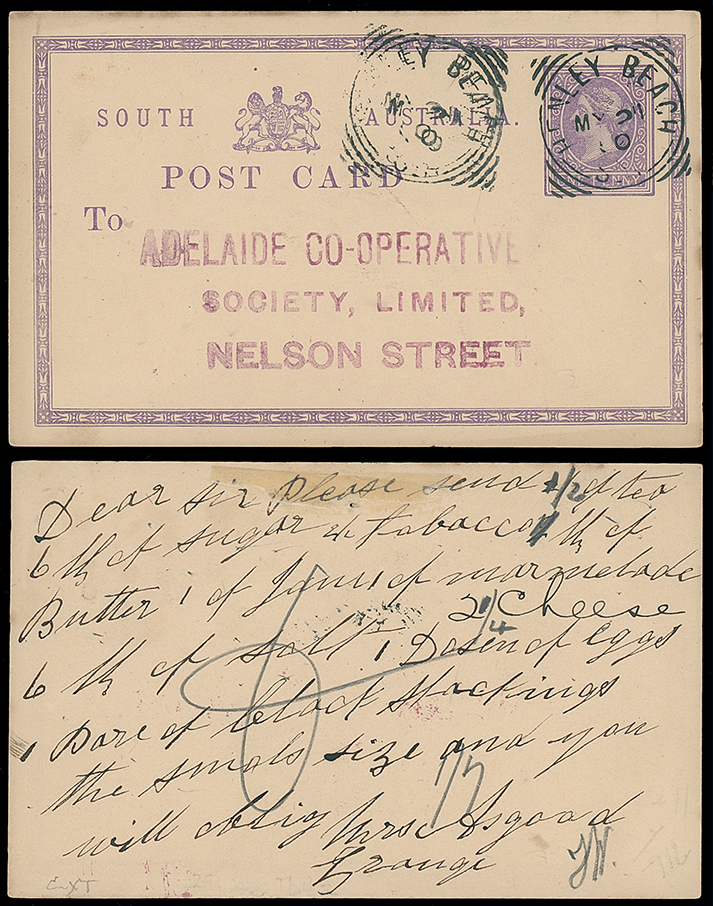 SOUTH AUSTRALIA.
POST CARD
To
HENLEY BEACH
MY 21
HENLEY BEACH
MY 21
ADELAIDE CO-OPERATIVE
SOCIETY, LIMITED,
NELSON STREET
Dear sir Please send 1/2 of tea
6 lb of sugar 2/4 tobacco 1 lb of
Butter 1 of Jam 1 of marmelade
2 1/4 Cheese
6 lb of salt 1 Dosen of Eggs
1 Pare of black stockings
the smals size and you
will oblig Mrs Asgood
Grange